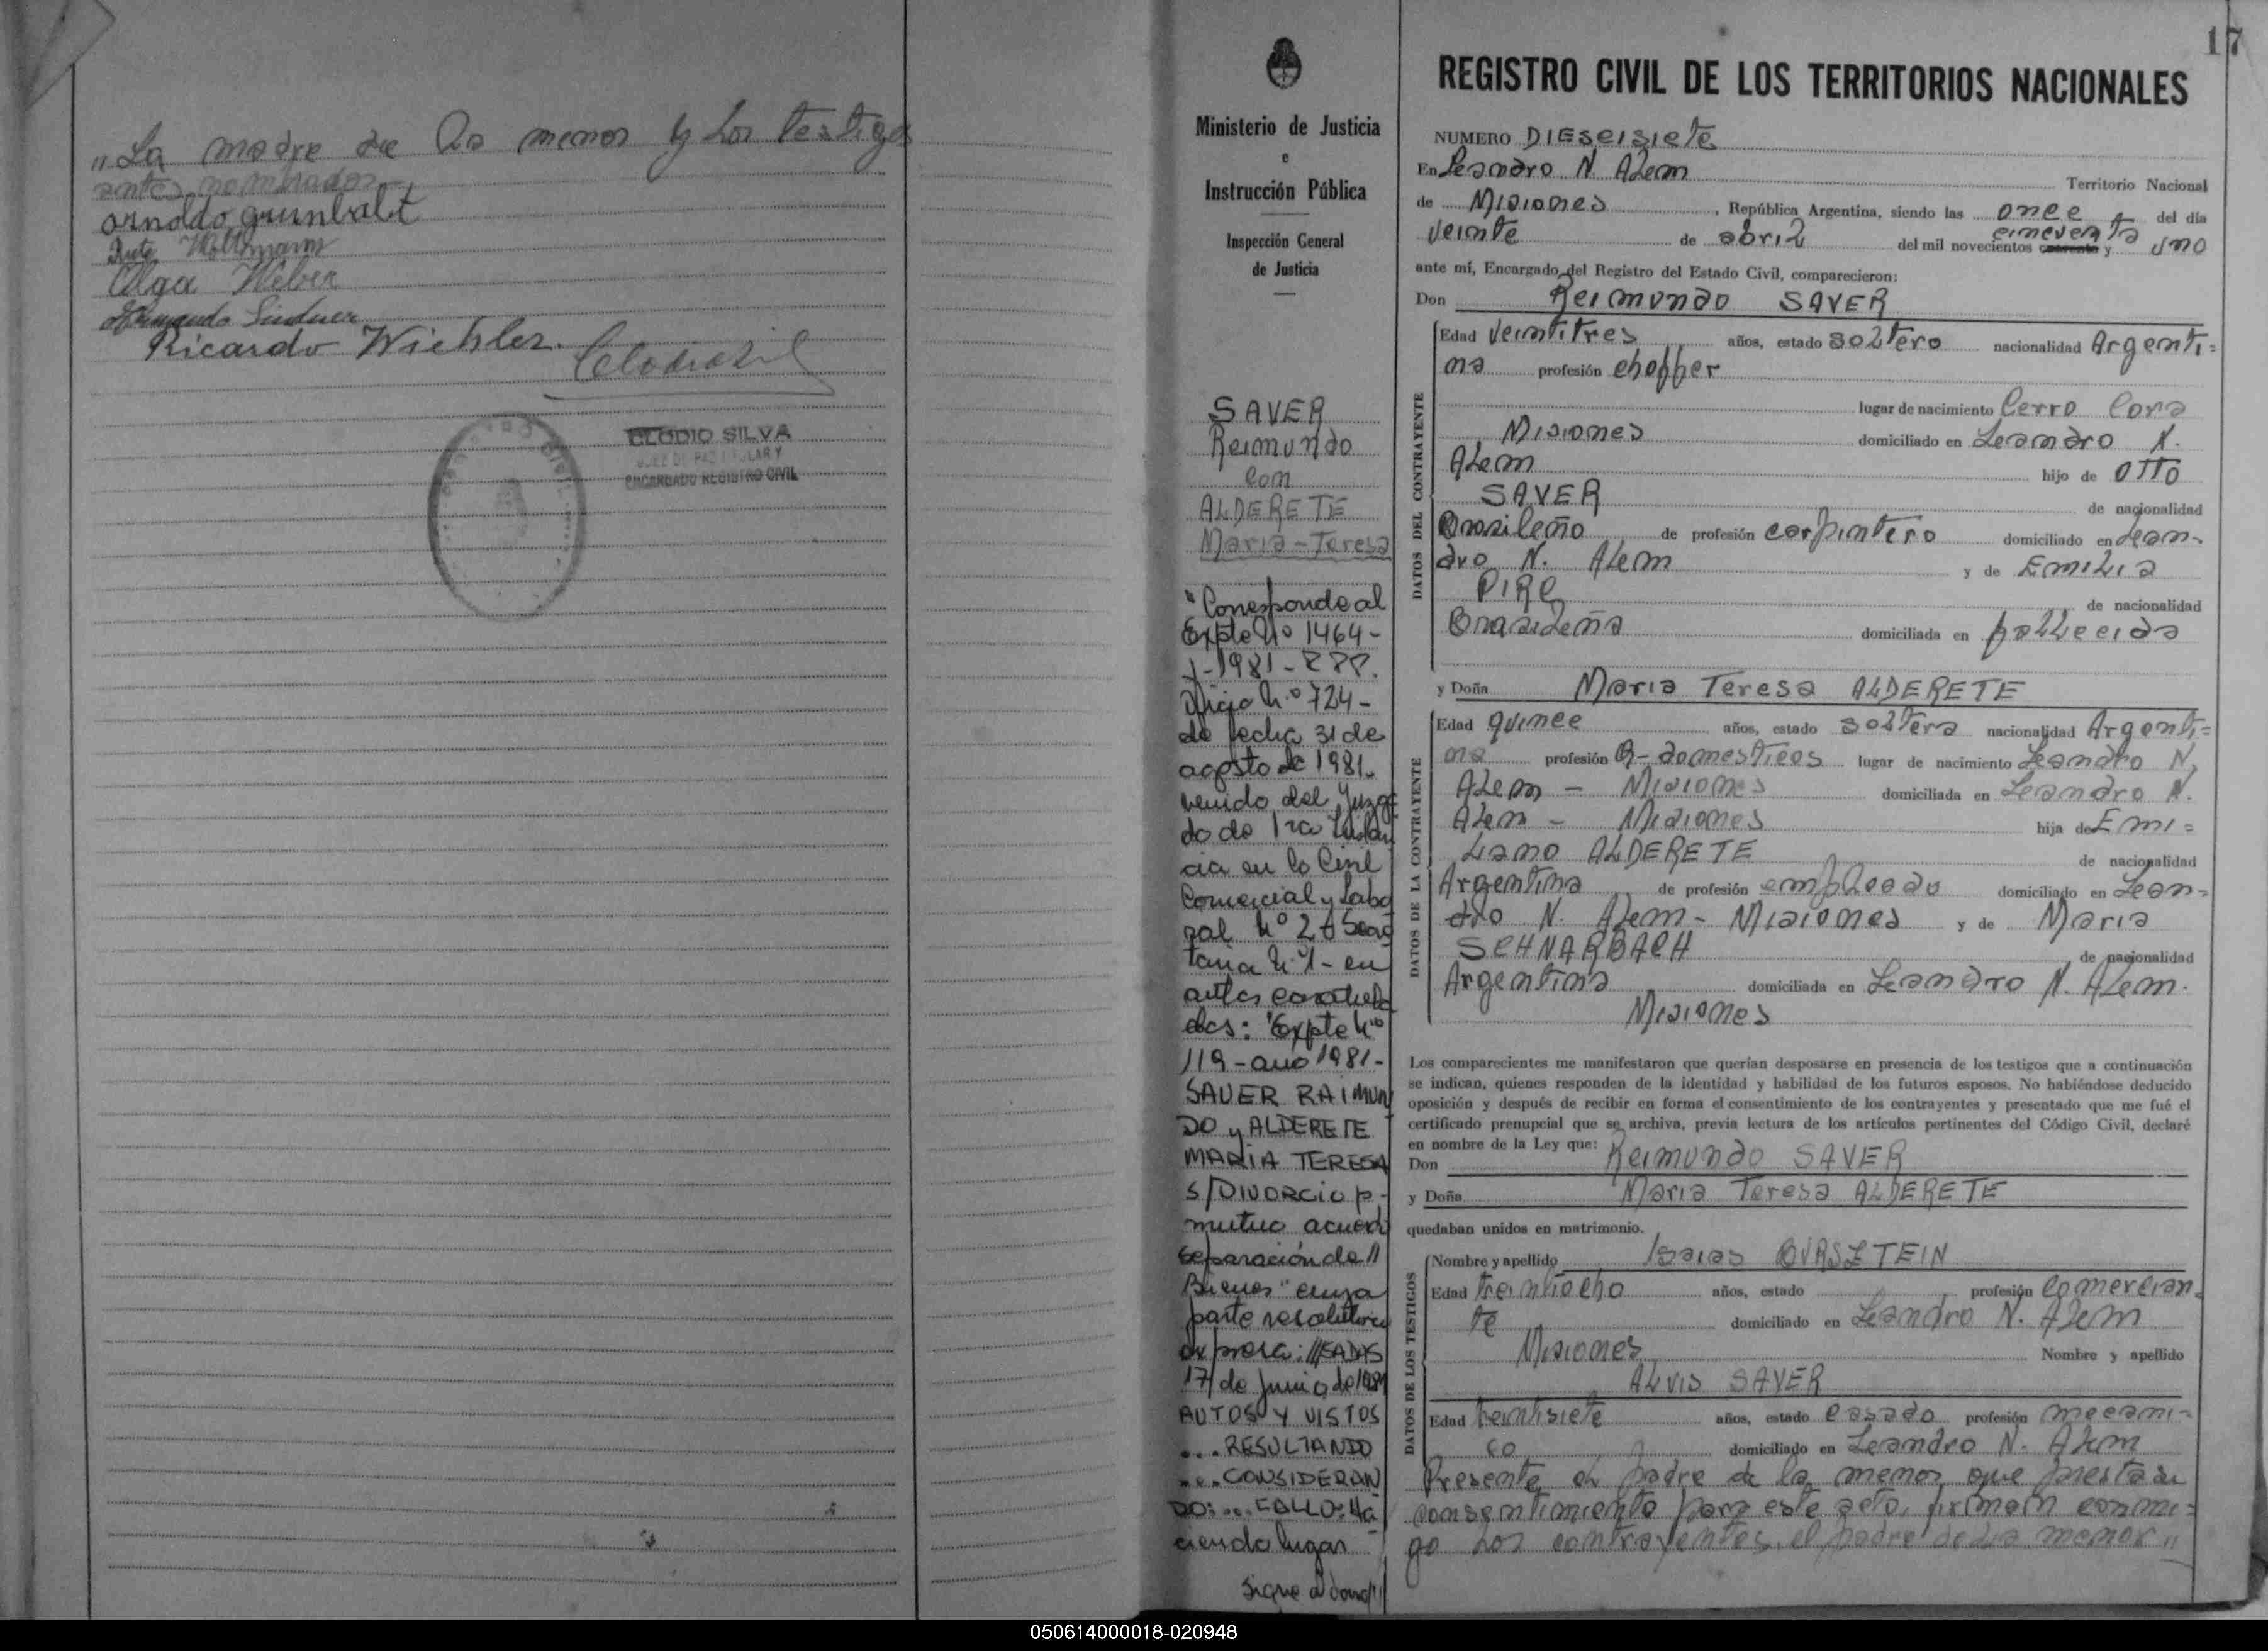 "La madre de la menor y los testigos
antes nombrados
arnoldo grunbalt
Ruts Woltmann
Olga Weber
Armando Lindner
Ricardo Wichler.
CLODIO SILVA
JUEZ DE PAZ TITULAR Y
ENCARGADO REGISTRO CIVIL
17
Ministerio de Justicia
e
Instrucción Pública
Inspección General
de Justicia
SAVER
Reimundo
con
ALDERETE
Maria-Teresa
"Corresponde al
Expte Nº 1464-
1981-
Oficio Nº 724-
de fecha 31 de
agosto de 1981.
venido del Juzga
do de 1ra Instan
cia en lo Civil
Comercial y Labo
ral Nº 2 Secre
taria Nº 1- en
autos caratula
dos: "Expte Nº
119-año 1981-
SAUER RAIMUN
DO y ALDERETE
MARIA TERESA
S/DIVORCIO p-
mutuo acuerdo
separación de //
Bienes" cuya
parte resolutiva
expresa: ///SADAS
17 de Junio de 1981
AUTOS Y VISTOS
... RESULTANDO
... CONSIDERAN
DO: ... FALLO: Ha
ciendo lugar
sigue a dorso//
REGISTRO CIVIL DE LOS TERRITORIOS NACIONALES
NUMERO DIESEISIETE
En Leandro N Alem Territorio Nacional
de Misiones, República Argentina, siendo las once del día
veinte de abril del mil novecientos cincuenta y uno
ante mí, Encargado del Registro del Estado Civil, comparecieron:
Don Reimundo SAVER
DATOS DEL CONTRAYENTE
Edad veintitres años, estado soltero nacionalidad Argenti=
na profesión choffer
lugar de nacimiento Cerro Cora
Misiones domiciliado en Leandro N.
Alem hijo de OTTO
SAVER de nacionalidad
Brasileño de profesión carpintero domiciliado en Lean-
dro N. Alem y de EMILIA
PIRE de nacionalidad
Brasileña domiciliada en fallecida
y Doña Maria Teresa ALDERETE
DATOS DE LA CONTRAYENTE
Edad quince años, estado soltera nacionalidad Argenti=
na profesión Q-domesticos lugar de nacimiento Leandro N,
Alem - Misiones domiciliada en Leandro N.
Alem - Misiones hija de Emi=
liano ALDERETE de nacionalidad
Argentina de profesión empleado domiciliado en Lean=
dro N. Alem - Misiones y de Maria
SCHNARBACH de nacionalidad
Argentina domiciliada en Leandro N. Alem.
Misiones
Los comparecientes me manifestaron que querían desposarse en presencia de los testigos que a continuación
se indican, quienes responden de la identidad y habilidad de los futuros esposos. No habiéndose deducido
oposición y después de recibir en forma el consentimiento de los contrayentes y presentado que me fué el
certificado prenupcial que se archiva, previa lectura de los artículos pertinentes del Código Civil, declaré
en nombre de la Ley que:
Don Reimundo SAVER
y Doña Maria Teresa ALDERETE
quedaban unidos en matrimonio.
DATOS DE LOS TESTIGOS
Nombre y apellido Isaias BURSZTEIN
Edad treintiocho años, estado profesión comercian
te domiciliado en Leandro N. Alem
Misiones Nombre y apellido
ALVIS SAVER
Edad veintisiete años, estado casado profesión mecani=
co domiciliado en Leandro N. Alem
Presente el padre de la menor que presta su
consentimiento para este acto, firman conmi=
go los contrayentes, el padre de la menor "
050614000018-020948